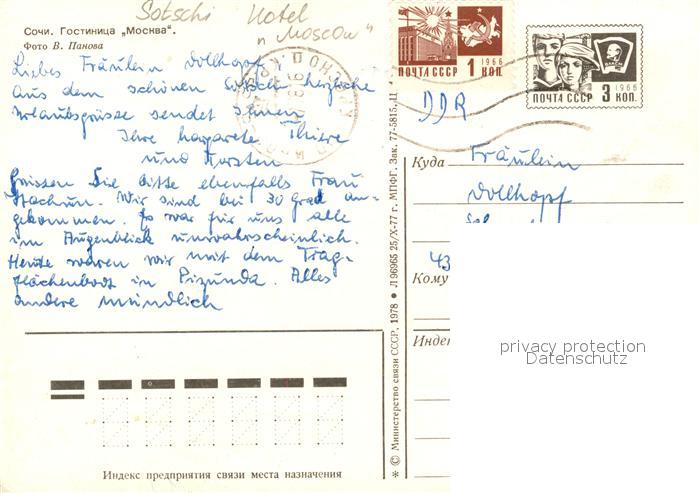 Sotschi Hotel
"Moscow"
Сочи. Гостиница „Москва".
Фото В. Панова
Liebes Fräulein Dollhopf
Aus dem schönen Sotschi herzliche
Urlaubsgrüsse sendet Ihnen
Ihre Margarete Thiere
und Torsten
Grüssen Sie bitte ebenfalls Frau
Wir sind bei 30 Grad an-
gekommen. Es war für uns alle
im Augenblick unwahrscheinlich.
Heute waren wir mit dem Trag-
flächenboot in Pizunda. Alles
andere mündlich
1966
ПОЧТА СССР 1 КОП.
1966
ПОЧТА СССР 3 КОП.
ВЛКСМ
DDR
Куда Fräulein
Dollhopf
43
Кому
Индек
privacy protection
Datenschutz
* © Министерство связи СССР. 1978 • Л 96965 25/X-77 г. МПФГ. Зак. 77-5815. Ц
Индекс предприятия связи места назначения